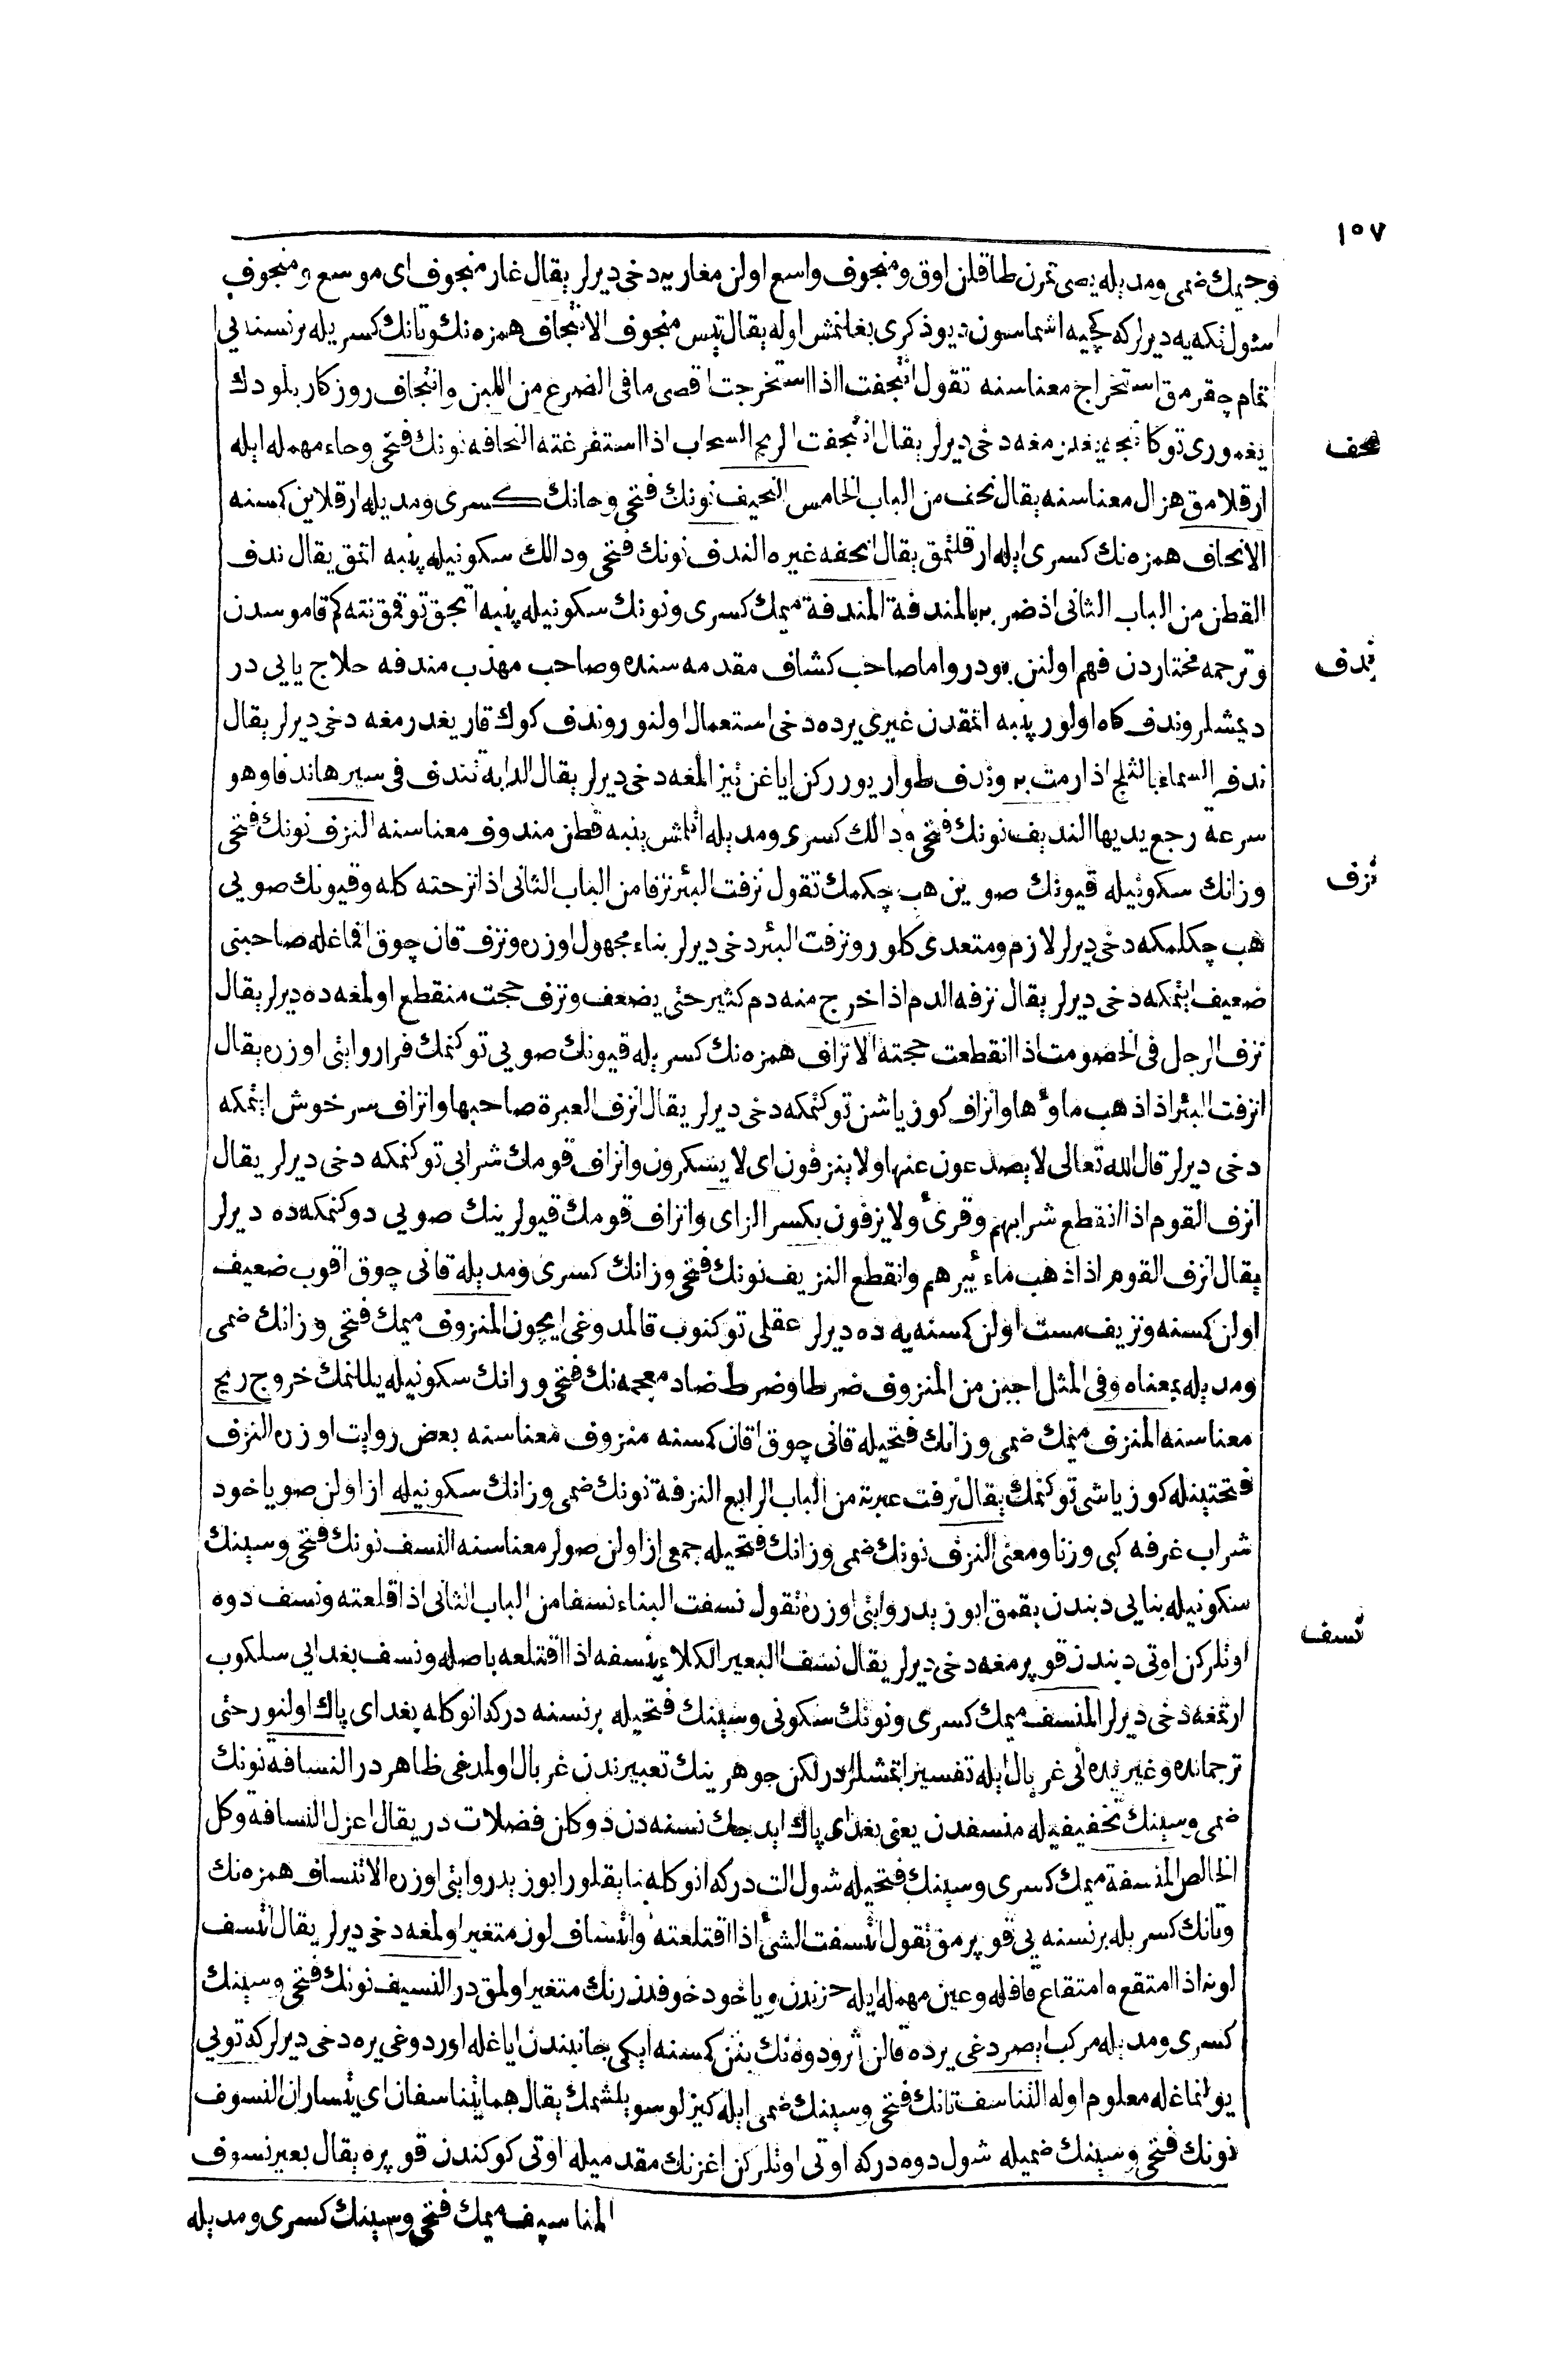 ١٥٧
وجيمك ضمى ومديله يصى تمرن طاقلن اوق ومنجوف واسع اولن مغاريه دخى ديرلر يقال غار منجوف اى موسع ومنجوف
شول تكه يه ديرلر كه كچييه اشماسون ديو ذكرى بغلنمش اوله يقال تيس منجوف الانتجاف همزه نك وتانك كسريله برنسنه يى
تمام چقرمق استخراج معناسنه تقول انتجفت اذا استخرجت اقصى ما فى الضرع من اللبن وانتجاف روزكار بلودك
يغمورى توكانجه يغدرمغه دخى ديرلر يقال انتجفت الريح السحاب اذا استفرغته النحافه نونك فتحى وحاء مهمله ايله
نحف
ارقلامق هزال معناسنه يقال نحف من الباب الخامس النحيف نونك فتحى وحانك كسرى ومديله ارقلاين كسنه
الانحاف همزه نك كسرى ايله ارقلتمق يقال انحفه غيره الندف نونك فتحى ودالك سكونيله پنبه اتمق يقال ندف
القطن من الباب الثانى اذ ضربه بالمندفة المندفة ميمك كسرى ونونك سكونيله پنبه اتجق توقمق نته كم قاموسدن
وترجمه مختاردن فهم اولنن بودر واما صاحب كشاف مقدمه سنده وصاحب مهذب مندفه حلاج يايى در
ندف
ديمشلر وندف كاه اولور پنبه اتمقدن غيرى يرده دخى استعمال اولنور وندف كوك قار يغدرمغه دخى ديرلر يقال
ندفت السماء بالثلج اذا رمت به وندف طوار يوررركن اياغن تيز المغه دخى ديرلر يقال الدابه تندف فى سيرها ندفا وهو
سرعة رجع يديها النديف نونك فتحى ودالك كسرى ومديله اتلمش پنبه قطن مندوف معناسنه النزف نونك فتحى
وزانك سكونيله قيونك صوين هب چكمك تقول نزفت البئر نزفا من الباب الثانى اذا نزحته كله وقيونك صويى
نزف
هب چكلمكه دخى ديرلر لازم ومتعدى كلور ونزفت البئر دخى ديرلر بناء مجهول اوزره ونزف قان چوق اقماغله صاحبنى
ضعيف ايتمكه دخى ديرلر يقال نزفه الدم اذا خرج منه دم كثير حتى يضعف ونزف حجت منقطع اولمغه ده ديرلر يقال
نزف الرجل فى الخصومت اذا انقطعت حجته الانزاف همزه نك كسريله قيونك صويى توكنمك فرا روايتى اوزره يقال
انزفت البئر اذا ذهب ماؤها وانزاف كوز ياشن توكتمكه دخى ديرلر يقال انزف العبرة صاحبها وانزاف سرخوش ايتمكه
دخى ديرلر قال الله تعالى لا يصدعون عنها ولا ينزفون اى لا يسكرون وانزاف قومك شرابى توكنمكه دخى ديرلر يقال
انزف القوم اذا انقطع شرابهم وقرئ ولا ينزفون بكسر الزاى وانزاف قومك قيولرينك صويى دوكنمكه ده ديرلر
يقال انزف القوم اذا ذهب ماء بئرهم وانقطع النزيف نونك فتحى وزانك كسرى ومديله قانى چوق اقوب ضعيف
اولن كمسنه ونزيف مست اولن كمسنه يه ده ديرلر عقلى توكنوب قالمدوغى ايچون المنزوف ميمك فتحى وزانك ضمى
ومديله بمعناه وفى المثل اجبن من المنزوف ضرطا وضرط ضاد معجمه نك فتحى ورانك سكونيله يللنمك خروج ريح
معناسنه المنزف ميمك ضمى وزانك فتحيله قانى چوق اقان كمسنه منزوف معناسنه بعض روايت اوزره النزف
فتحتينله كوز ياشى توكنمك يقال نزفت عبرته من الباب الرابع النزفة نونك ضمى وزانك سكونيله از اولن صو ياخود
شراب غرفه كبى وزنا ومعنى النزف نونك ضمى وزانك فتحيله جمعى از اولن صولر معناسنه النسف نونك فتحى وسينك
سكونيله بنايى دبندن يقمق ابو زيد روايتى اوزره تقول نسفت البناء نسفا من الباب الثانى اذا قلعته ونسف دوه
نسف
اوتلركن اوتى دبندن قوپرمغه دخى ديرلر يقال نسف البعير الكلاء ينسفه اذا اقتلعه باصله ونسف بغدايى سلكوب
ارتمغه دخى ديرلر المنسف ميمك كسرى ونونك سكونى وسينك فتحيله برنسنه دركه انوكله بغداى پاك اولنور حتى
ترجمانده وغيرنده انى غربال ايله تفسير ايتمشلردر لكن جوهرينك تعبيرندن غربال اولمدغى ظاهردر النسافة نونك
ضمى وسينك تخفيفيله منسفدن يعنى بغداى پاك ايدجك نسنه دن دوكلن فضلات در يقال اعزل النسافة وكل
الخالص المنسفة ميمك كسرى وسينك فتحيله شول الت دركه انوكله بنا يقلور ابو زيد روايتى اوزره الانتساف همزه نك
وتانك كسريله برنسنه يى قوپرمق تقول انتسفت الشئ اذا اقتلعته وانتساف لون متغير اولمغه دخى ديرلر يقال انتسف
لونه اذا امتقع وامتقاع قافله وعين مهمله ايله حزندن ياخود خوفدن رنك متغير اولمق در النسيف نونك فتحى وسينك
كسرى ومديله مركب اصردغى يرده قالن اثر ودوه نك بنن كمسنه ايكى جانبندن اياغله اوردوغى يره دخى ديرلركه تويى
يولنماغله معلوم اوله التناسف تانك فتحى وسينك ضمى ايله كيزلو سويلشمك يقال هما يتناسفان اى يتساران النسوف
نونك فتحى وسينك ضميله شول دوه دركه اوتى اوتلركن اغزنك مقدميله اوتى كوكندن قوپره يقال بعير نسوف
المناسيف ميمك فتحى وسينك كسرى ومديله